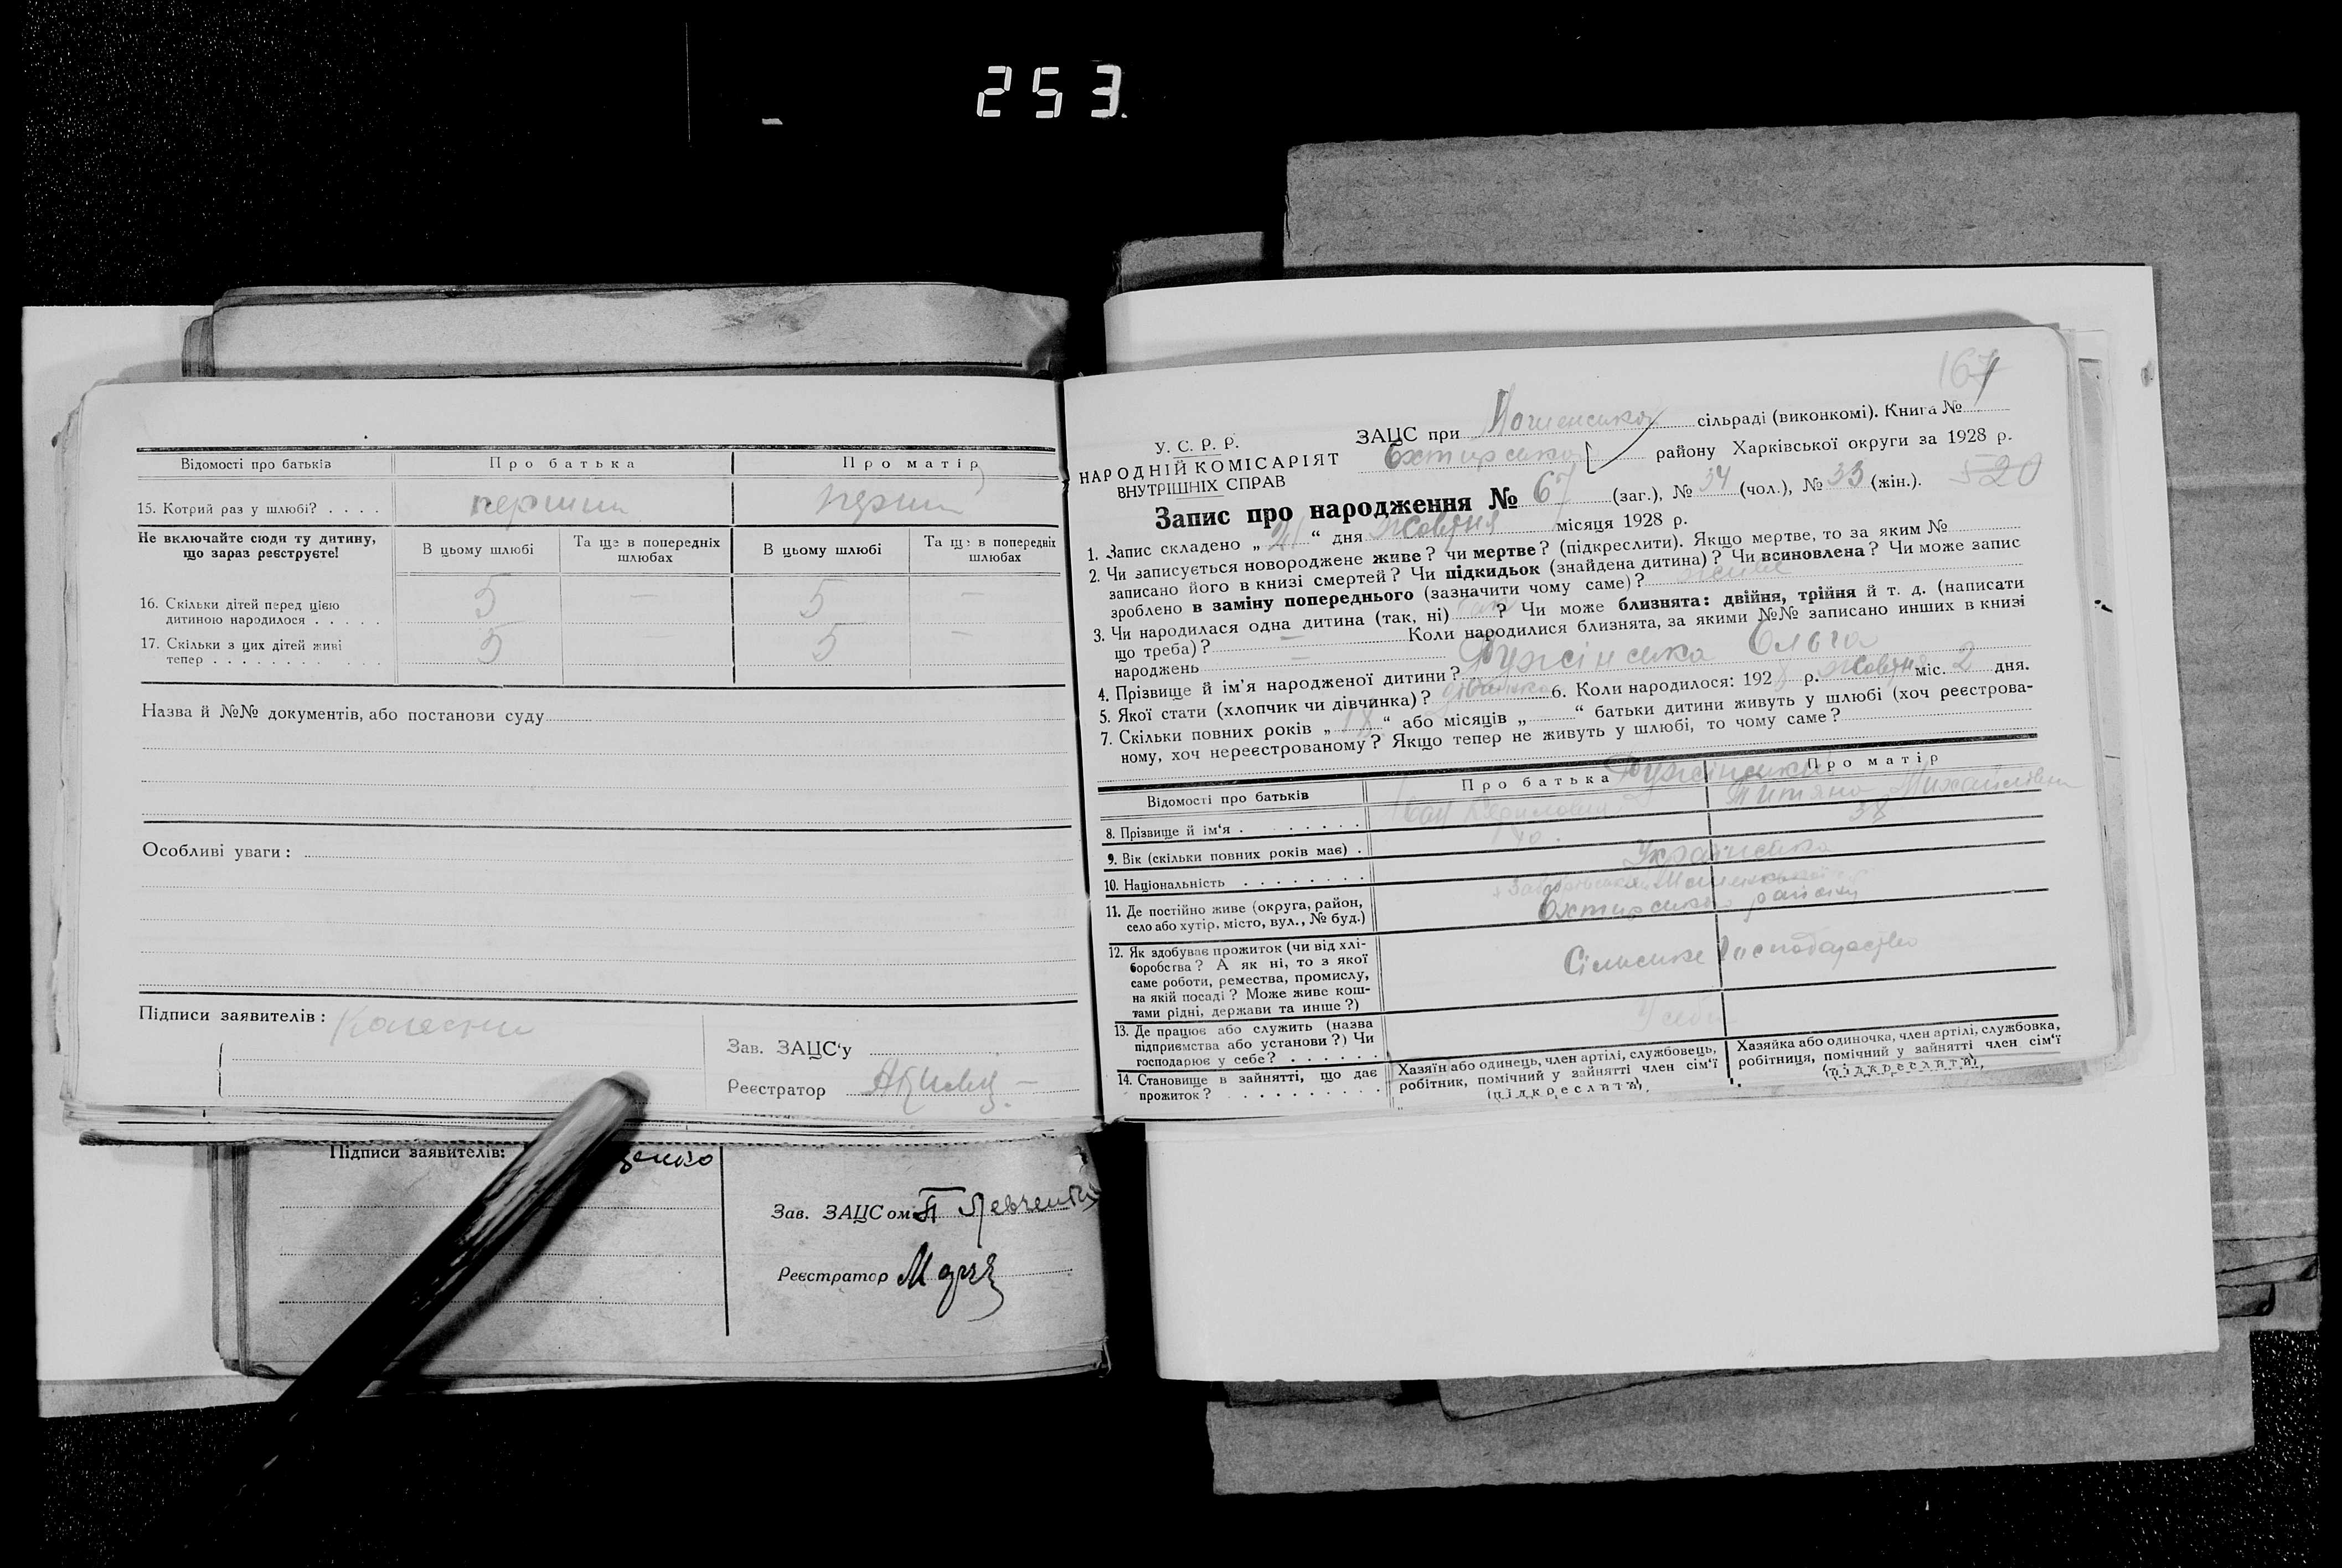 253.
Відомості про батьків Про батька Про матір
15. Котрий раз у шлюбі? . . . . перший перший
Не включайте сюди ту дитину, що зараз реєструєте!
В цьому шлюбі Та ще в попередніх шлюбах В цьому шлюбі Та ще в попередніх шлюбах
16. Скільки дітей перед цією
дитиною народилося . . . . . 5 — 5 —
17. Скільки з цих дітей живі
тепер . . . . . . . . . . . 5 5 —
Назва й №№ документів, або постанови суду
Особливі уваги:
Підписи заявителів:
Зав. ЗАЦС'у
Реєстратор
Підписи заявителів: ценко
Зав. ЗАЦСом П Левченко
Реєстратор
167
У. С. Р. Р.
НАРОДНІЙ КОМІСАРІЯТ
ВНУТРІШНІХ СПРАВ
ЗАЦС при сільраді (виконкомі). Книга №
району Харківської округи за 1928 р.
520
Запис про народження № 67 (заг.), № 34 (чол.), № 33 (жін.).
1. Запис складено „ “ дня Жовтня місяця 1928 р.
2. Чи записується новороджене живе? чи мертве? (підкреслити). Якщо мертве, то за яким №
записано його в книзі смертей? Чи підкидьок (знайдена дитина)? Чи всиновлена? Чи може запис
зроблено в заміну попереднього (зазначити чому саме)? живе
3. Чи народилася одна дитина (так, ні) так ? Чи може близнята: двійня, трійня й т. д. (написати
що треба)? — Коли народилися близнята, за якими №№ записано инших в книзі
народжень —
4. Прізвище й ім'я народженої дитини? Ружінська Ольга
5. Якої стати (хлопчик чи дівчинка)? дівчинка 6. Коли народилося: 1928 р. Жовтня міс. 2 дня.
7. Скільки повних років „18“ або місяців „ “ батьки дитини живуть у шлюбі (хоч реєстрова-
ному, хоч нереєстрованому? Якщо тепер не живуть у шлюбі, то чому саме?
Відомості про батьків Про батька Про матір
Ружінські
8. Прізвище й ім'я . . . . . . . . Іван Кирилович Титяна Михайлівна
9. Вік (скільки повних років має) . 40. 38
10. Національність . . . . . . . . Українська
11. Де постійно живе (округа, район,
село або хутір, місто, вул., № буд.) Охтирсько району
12. Як здобуває прожиток (чи від хлі-
боробства? А як ні, то з якої
саме роботи, ремества, промислу,
на якій посаді? Може живе кош-
тами рідні, держави та инше?) Сільське Господарство
13. Де працює або служить (назва
підприємства або установи?) Чи
господарює у себе? . . . . . . У себе
14. Становище в зайнятті, що дає
прожиток? . . . . . . . . . .
Хазяїн або одинець, член артілі, службовець,
робітник, помічний у зайнятті член сім'ї
(підкреслити).
Хазяйка або одиночка, член артілі, службовка,
робітниця, помічний у зайнятті член сім'ї
(підкреслити).